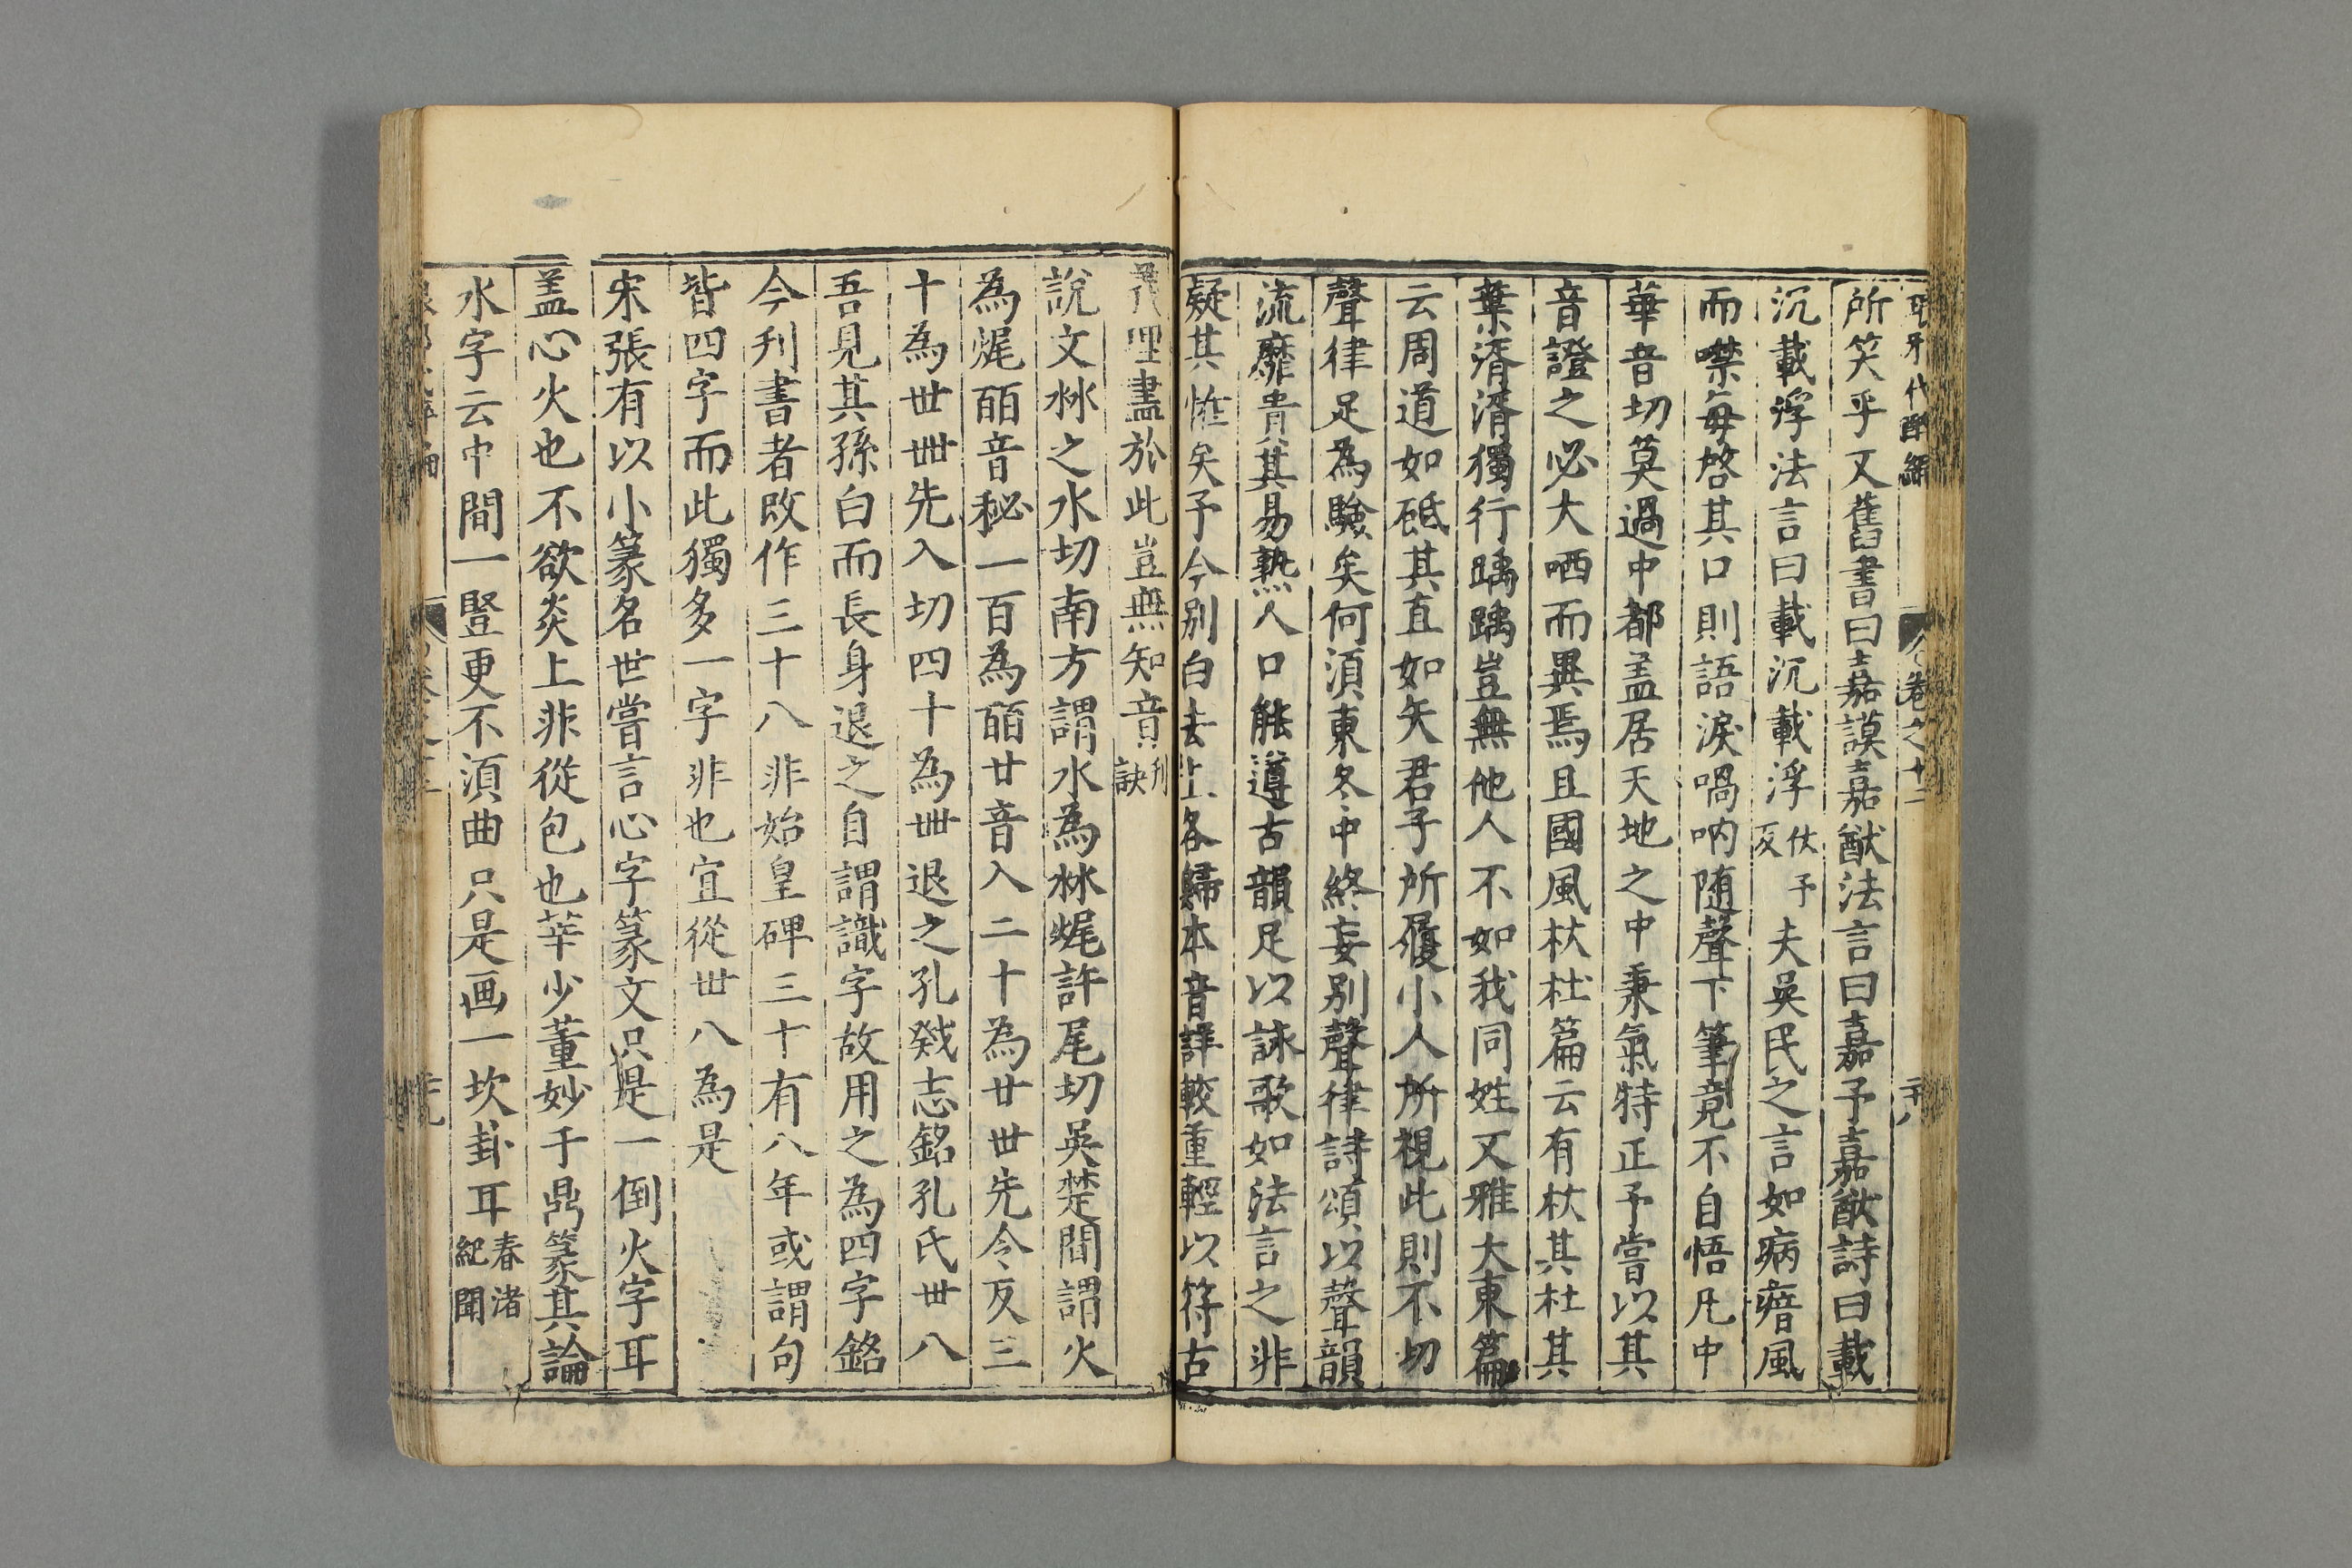 琅邪代醉編 卷之十二 二十八
所笑乎又舊書曰嘉謨嘉猷法言曰嘉予嘉猷詩曰載
沉載浮法言曰載沉載浮伏予反夫吳民之言如病瘖風
而噤每啓其口則語淚喎吶随聲下筆竟不自悟凡中
華音切莫過中都盖居天地之中秉氣特正予嘗以其
音證之必大哂而異焉且國風杕杜篇云有杕其杜其
葉湑湑獨行踽踽豈無他人不如我同姓又雅大東篇
云周道如砥其直如矢君子所履小人所視此則不切
聲律足為驗矣何須東冬中終妄別聲律詩頌以聲韻
流靡貴其易熟人口能遵古韻足以詠歌如法言之非
疑其恠矣予今別白去上各歸本音詳較重輕以符古
義理盡於此豈無知音刋誤
說文沝之水切南方謂水為沝㷄許尾切吳楚間謂火
為㷄皕音秘一百為皕廿音入二十為廿丗先今反三
十為丗卌先入切四十為卌退之孔戣志銘孔氏丗八
吾見其孫白而長身退之自謂識字故用之為四字銘
今刋書者改作三十八非始皇碑三十有八年或謂句
皆四字而此獨多一字非也宜從丗八為是
宋張有以小篆名世嘗言心字篆文只是一倒火字耳
盖心火也不欲炎上非從包也莘少董妙于鼎篆其論
水字云中間一竪更不湏曲只是画一坎卦耳春渚紀聞